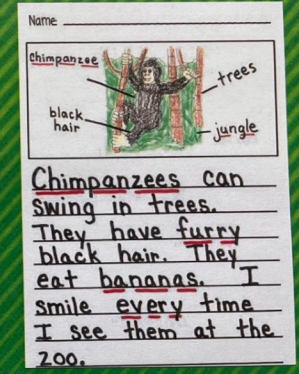 Name
Chimpanzee
trees
black
hair
jungle
Chimpanzees can
swing in trees.
They have furry
black hair. They
eat bananas. I
smile every time
I see them at the
zoo.